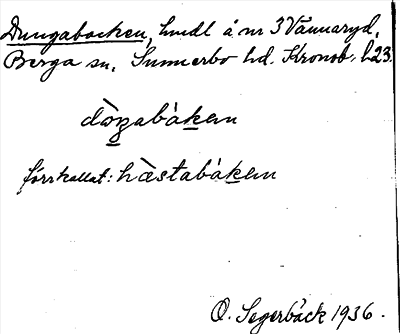 Dungabacken, hmdl å nr 3 Vännaryd,
Berga sn, Sunnerbo hd. Kronob. l. 23.
dòŋabákɐn
förr kallat: hæ̀stabákɐn
O. Segerbäck 1936.